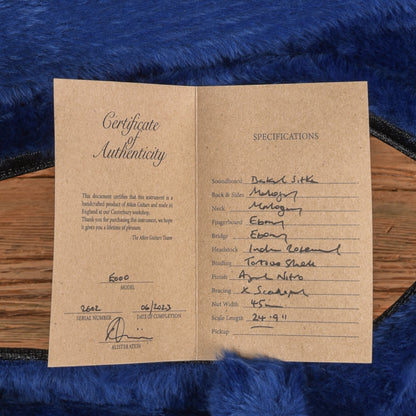 Certificate
of
Authenticity
This document certifies that this instrument is a
handcrafted product of Atkin Guitars and made in
England at our Canterbury workshop.
Thank you for purchasing this instrument, we hope
it gives you a lifetime of pleasure.
- The Atkin Guitars Team
MODEL
2602 06/2023
SERIAL NUMBER DATE OF COMPLETION
ALISTER ATKIN
SPECIFICATIONS
Soundboard Baked Sitka
Back & Sides Mahogany
Neck Mahogany
Fingerboard Ebony
Bridge Ebony
Headstock Indian Rosewood
Binding Tortoise Shell
Finish Aged Nitro
Bracing X Scalloped
Nut Width 45mm
Scale Length 24.9"
Pickup